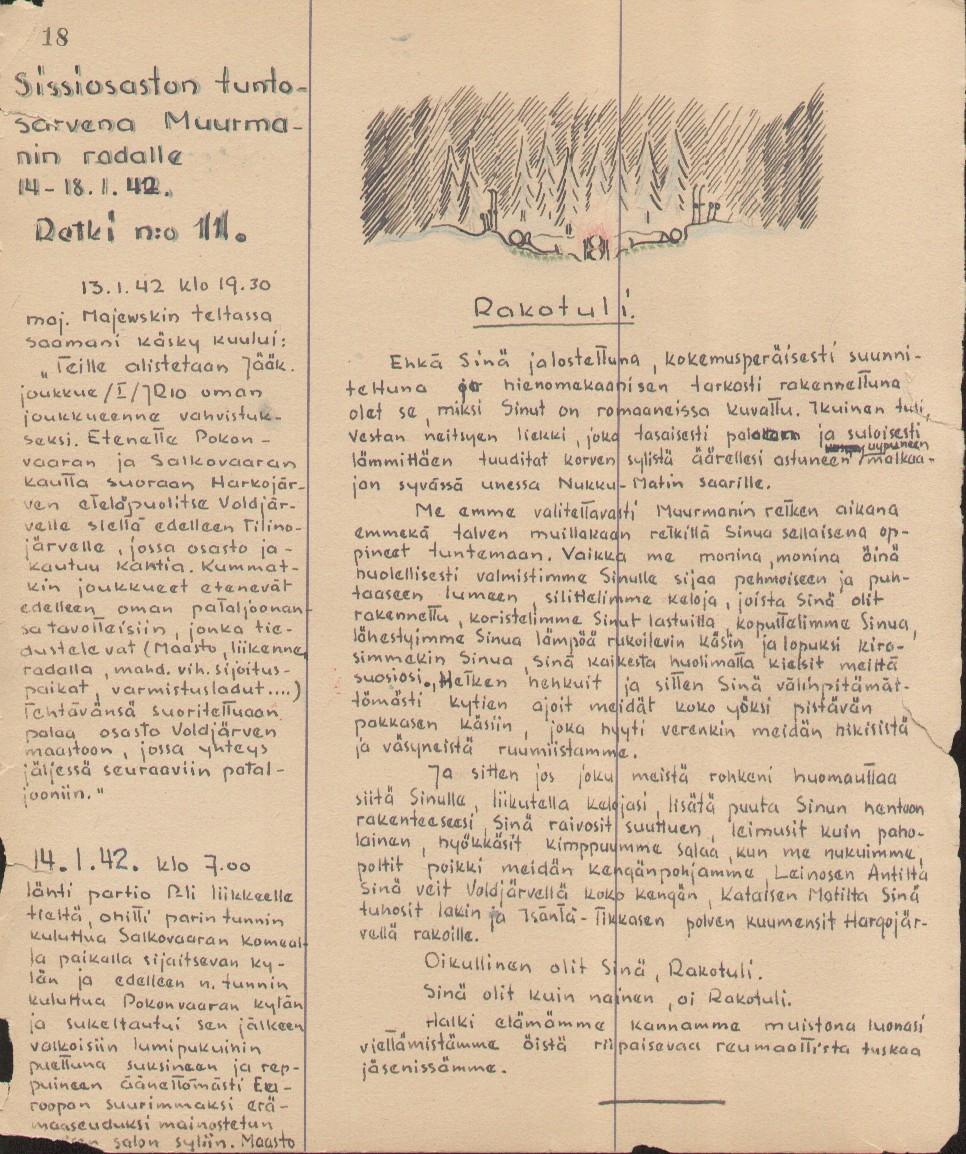 18
Sissiosaston tunto-
sarvena Muurma-
nin radalle
14-18.1.42.
Retki n:o 11.
13.1.42 klo 19.30
maj. Majewskin teltassa
saamani käsky kuului:
„Teille alistetaan Jääk.
joukkue/I/JR10 oman
joukkueenne vahvistuk-
seksi. Etenette Pokon-
vaaran ja Salkovaaran
kautta suoraan Harkojär-
ven eteläpuolitse Voldjär-
velle sieltä edelleen Tilino-
järvelle, jossa osasto ja-
kautuu kahtia. Kummat-
kin joukkueet etenevät
edelleen oman pataljoonan-
sa tavoitteisiin, jonka tie-
dustelevat (Maasto, liikenne
radalla, mahd. vih. sijoitus-
paikat, varmistusladut....)
Tehtävänsä suoritettuaan
palaa osasto Voldjärven
maastoon, jossa yhteys
jäljessä seuraaviin patal-
jooniin."
14.1.42. klo 7.00
lähti partio R:li liikkeelle
tieltä, ohitti parin tunnin
kuluttua Salkovaaran komeal-
la paikalla sijaitsevan ky-
län ja edelleen n. tunnin
kuluttua Pokonvaaran kylän
ja sukeltautui sen jälkeen
valkoisiin lumipukuihin
puettuna suksineen ja rep-
puineen äänettömästi Eu-
roopan suurimmaksi erä-
maaseuduksi mainostetun
salon syliin. Maasto
Rakotuli.
Ehkä Sinä jalostettuna, kokemusperäisesti suunni-
teltuna ja hienomekaanisen tarkasti rakennettuna
olet se, miksi Sinut on romaaneissa kuvattu. Ikuinen tuli,
Vestan neitsyen liekki, joka tasaisesti palaen ja suloisesti
lämmittäen tuuditat korven sylistä äärellesi astuneen uupuneen matkaa-
jan syvässä unessa Nukku-Matin saarille.
Me emme valitettavasti Muurmanin retken aikana
emmekä talven muillakaan retkillä Sinua sellaisena op-
pineet tuntemaan. Vaikka me monina, monina öinä
huolellisesti valmistimme Sinulle sijaa pehmoiseen ja puh-
taaseen lumeen, silittelimme keloja, joista Sinä olit
rakennettu, koristelimme Sinut lastuilla, koputtelimme Sinua,
lähestyimme Sinua lämpöä rukoilevin käsin ja lopuksi kiro-
simmekin Sinua, Sinä kaikesta huolimatta kielsit meiltä
suosiosi. Hetken hehkuit ja sitten Sinä välinpitämät-
tömästi kytien ajoit meidät koko yöksi pistävän
pakkasen käsiin, joka hyyti verenkin meidän hikisistä
ja väsyneistä ruumiistamme.
Ja sitten jos joku meistä rohkeni huomauttaa
siitä Sinulle, liikutella kelojasi, lisätä puuta Sinun hentoon
rakenteeseesi, Sinä raivosit suuttuen, leimusit kuin paho-
lainen, hyökkäsit kimppuumme salaa, kun me nukuimme,
poltit poikki meidän kengänpohjamme, Leinosen Antilta
Sinä veit Voldjärvellä koko kengän, Kataisen Matilta Sinä
tuhosit lakin ja Isäntä-Tikkasen polven kuumensit Hargojär-
vellä rakoille.
Oikullinen olit Sinä, Rakotuli.
Sinä olit kuin nainen, oi Rakotuli.
Halki elämämme kannamme muistona luonasi
viettämistämme öistä riipaisevaa reumaattista tuskaa
jäsenissämme.